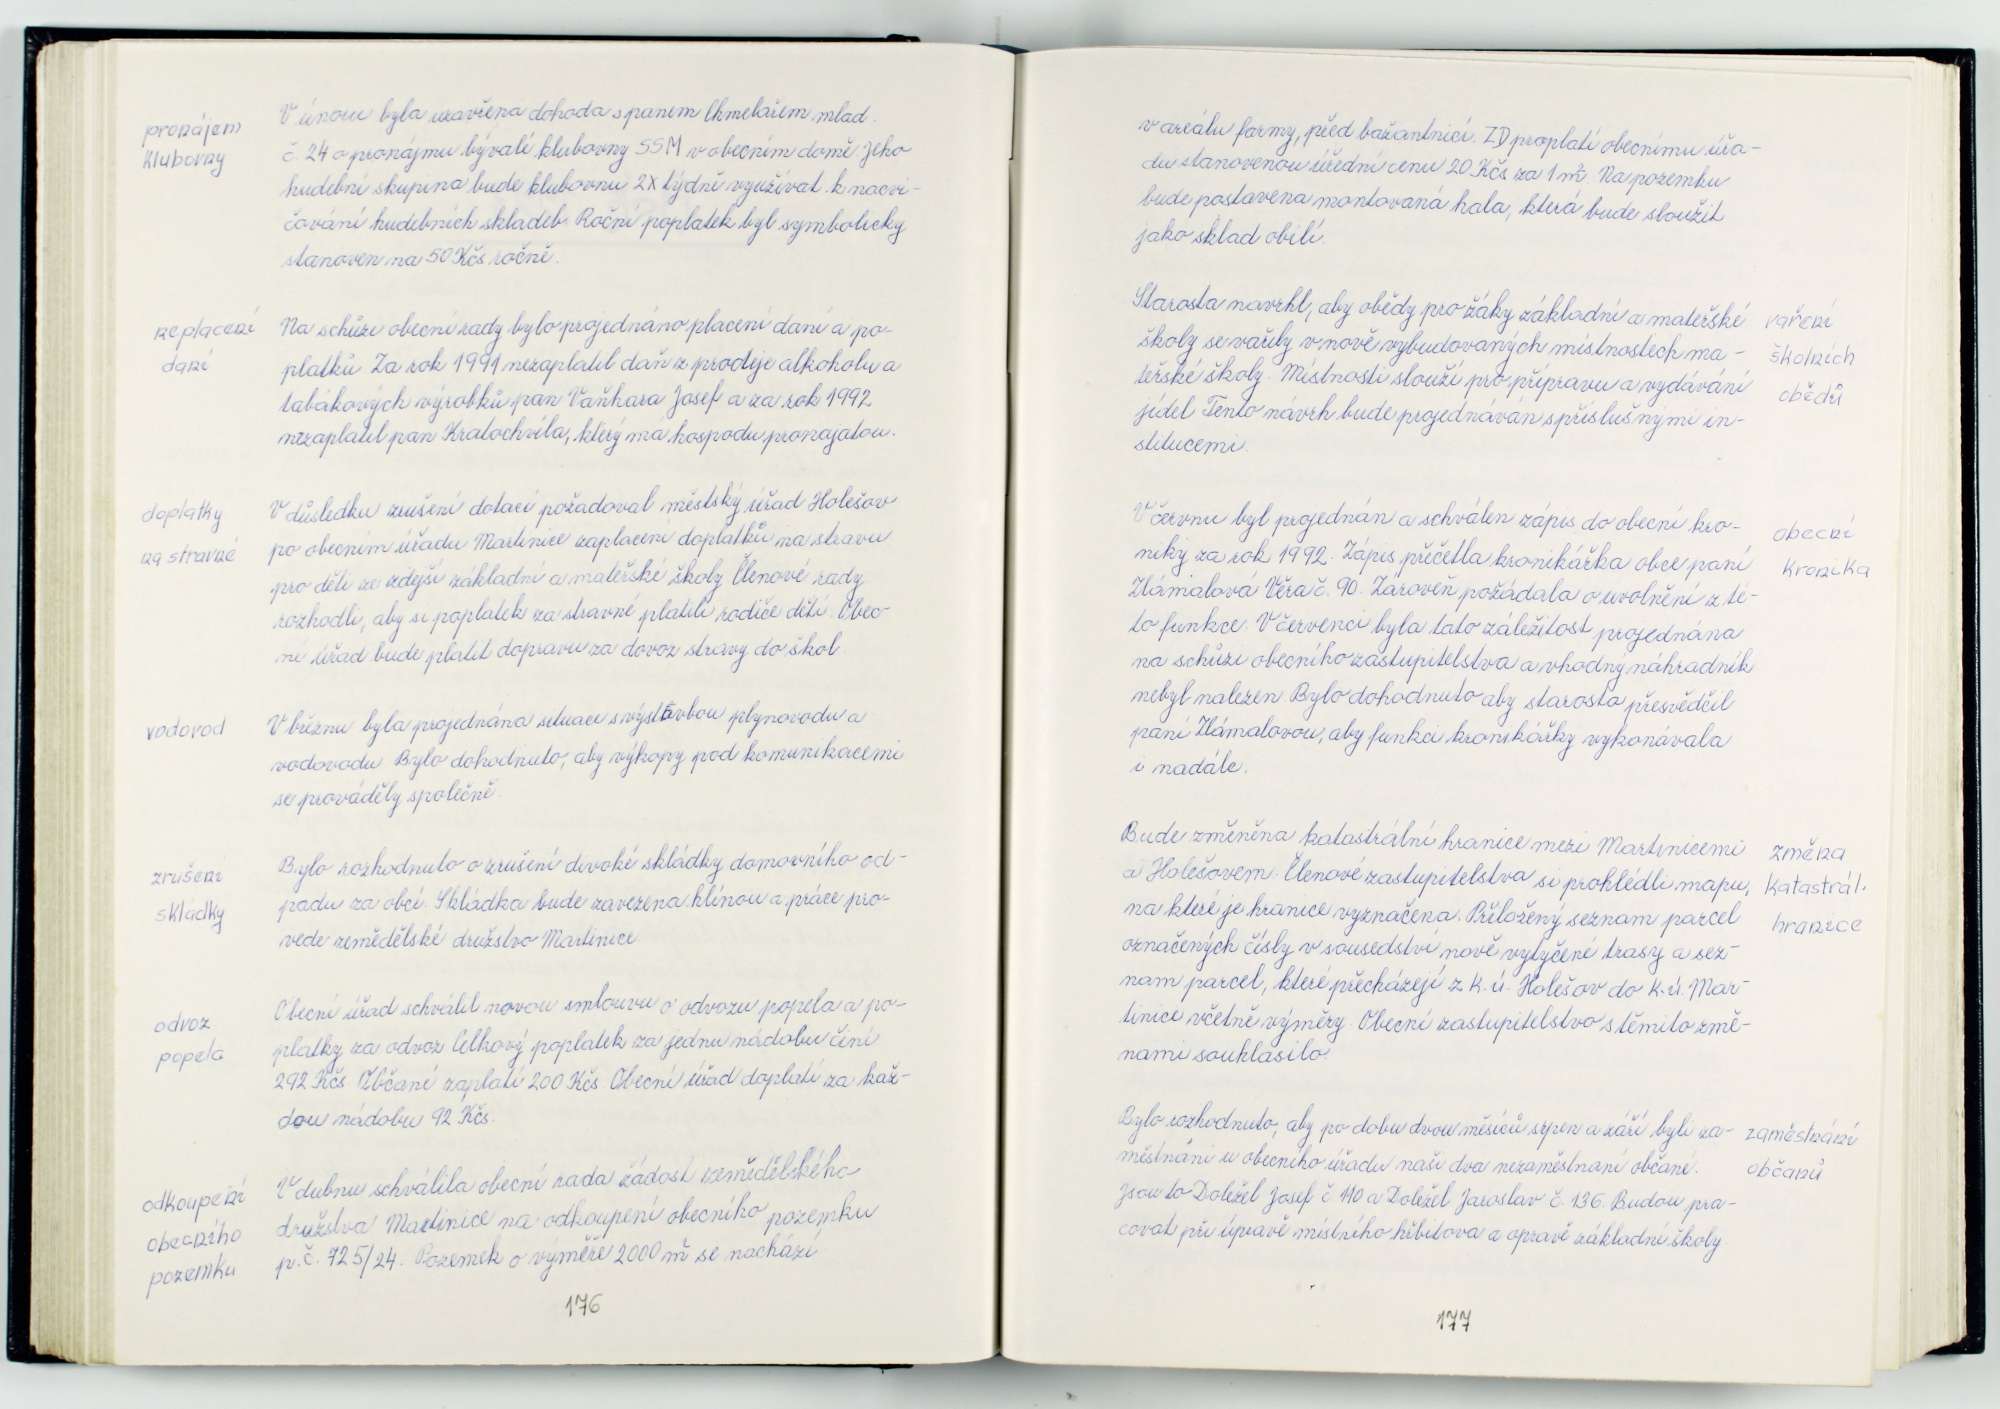 pronájem
klubovny
V únoru byla uzavřena dohoda s panem Chmelařem mlad.
č. 24 o pronájmu bývalé klubovny SSM v obecním domě. Jeho
hudební skupina bude klubovnu 2x týdně využívat k nacvi-
čování hudebních skladeb. Roční poplatek byl symbolicky
stanoven na 50 Kčs ročně.
neplacení
daní
Na schůzi obecní rady bylo projednáno placení daní a po-
platků. Za rok 1991 nezaplatil daň z prodeje alkoholu a
tabákových výrobků pan Vaňhara Josef a za rok 1992
nezaplatil pan Kratochvíla, který ma hospodu pronajatou.
doplatky
na stravné
V důsledku zrušení dotací požadoval městský úřad Holešov
po obecním úřadu Martinice zaplacení doplatků na stravu
pro děti ze zdejší základní a mateřské školy. Členové rady
rozhodli, aby si poplatek za stravné platili rodiče dětí. Obec-
ní úřad bude platit dopravu za dovoz stravy do škol.
vodovod
V březnu byla projednána situace s výstavbou plynovodu a
vodovodu. Bylo dohodnuto, aby výkopy pod komunikacemi
se prováděly společně.
zrušení
skládky
Bylo rozhodnuto o zrušení divoké skládky domovního od-
padu za obcí. Skládka bude zavezena hlínou a práce pro-
vede zemědělské družstvo Martinice
odvoz
popela
Obecní úřad schválil novou smlouvu o odvozu popela a po-
platky za odvoz. Celkový poplatek za jednu nádobu činí
292 Kčs. Občané zaplatí 200 Kčs. Obecní úřad doplatí za kaž-
dou nádobu 92 Kčs.
odkoupení
obecního
pozemku
V dubnu schválila obecní rada žádost zemědělského
družstva Martinice na odkoupení obecního pozemku
p.č. 725/24. Pozemek o výměře 2000 m² se nachází
176
v areálu farmy, před bažantnicí. ZD proplatí obecnímu úřa-
du stanovenou úřední cenu 20 Kčs za 1 m². Na pozemku
bude postavena montovaná hala, která bude sloužit
jako sklad obilí.
Starosta navrhl, aby obědy pro žáky základní a mateřské
školy se vařily v nově vybudovaných místnostech ma-
teřské školy. Místnosti slouží pro přípravu a vydávání
jídel. Tento návrh bude projednáván s příslušnými in-
stitucemi.
vaření
školních
obědů
V červnu byl projednán a schválen zápis do obecní kro-
niky za rok 1992. Zápis přečetla kronikářka obce paní
Zlámalová Věra č. 90. Zároveň požádala o uvolnění z té-
to funkce. V červenci byla tato záležitost projednána
na schůzi obecního zastupitelstva a vhodný náhradník
nebyl nalezen. Bylo dohodnuto aby starosta přesvědčil
paní Zlámalovou, aby funkci kronikářky vykonávala
i nadále.
obecní
kronika
Bude změněna katastrální hranice mezi Martinicemi
a Holešovem. Členové zastupitelstva si prohlédli mapu,
na které je hranice vyznačena. Přiložený seznam parcel
označených čísly v sousedství nově vytyčené trasy a sez-
nam parcel, které přecházejí z k.ú. Holešov do k.ú. Mar-
tinice včetně výměry. Obecní zastupitelstvo s těmito změ-
nami souhlasilo.
změna
katastrál.
hranice
Bylo rozhodnuto, aby po dobu dvou měsíců srpen a září byli za-
městnáni u obecního úřadu naši dva nezaměstnaní občané.
Jsou to Doležel Josef č 110 a Doležel Jaroslav č. 136. Budou pra-
covat při úpravě místního hřbitova a opravě základní školy
zaměstnání
občanů
177